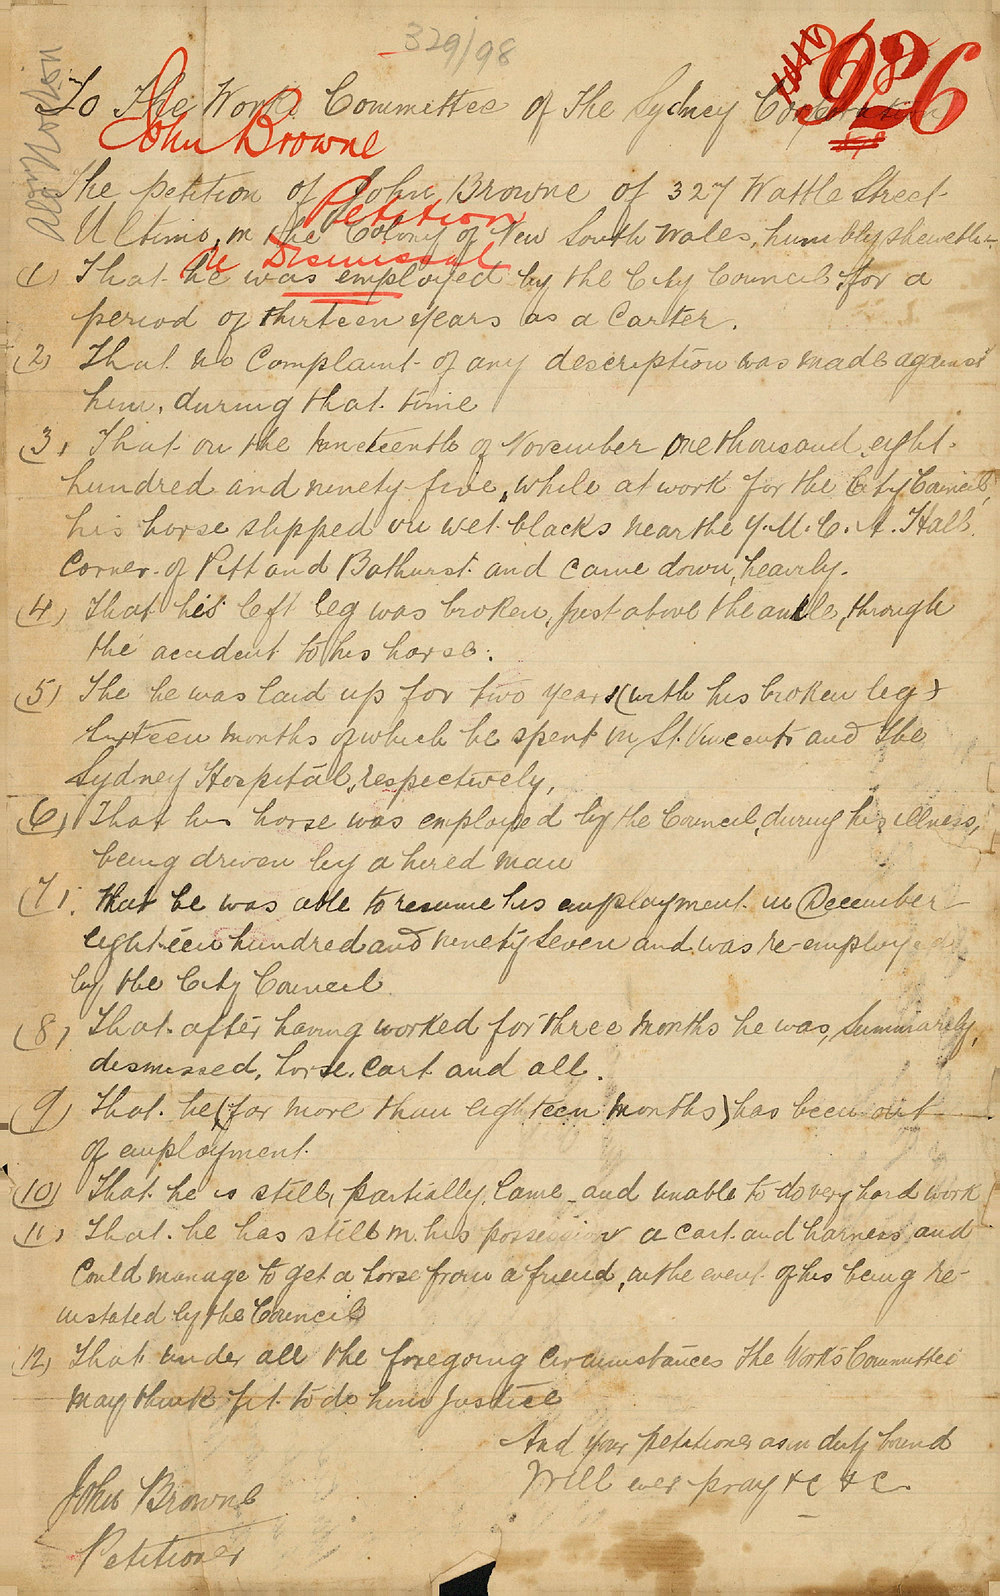 329/98
926
To The Works Committee of The Sydney Corporation
John Browne
The petition of John Browne of 327 Wattle Street
Petition
Ultimo, in the Colony of New South Wales, humbly sheweth:-
re Dismissal
(1) That he was employed by the City Council, for a
period of thirteen years as a Carter.
(2) That no Complaint of any description was made against
him, during that time
(3) That on the nineteenth of November One thousand eight
hundred and ninety five, while at work for the City Council,
his horse slipped on wet blocks near the Y.M.C.A. Hall.
Corner of Pitt and Bathurst and came down, heavily.
(4) That his left leg was broken, just above the ankle, through
the accident to his horse.
(5) The he was laid up for two years (with his broken leg)
months of which he spent in St. Vincents and The
Sydney Hospital, respectively,
(6) That his horse was employed by the Council, during his illness,
being driven by a hired man
(7) That he was able to resume his employment in December
eighteen hundred and ninety seven and was re-employed
by the City Council
(8) That after having worked for three months he was, Summarely,
dismissed, horse, cart and all.
(9) That he (for more than eighteen months) has been out
of employment.
(10) That he is still, partially, lame and unable to do very hard work
(11) That he has still in his possession a cart and harness, and
Could manage to get a horse from a friend, in the event of his being re-
instated by the Council
(12) That under all the foregoing circumstances the Works Committee
may think fit to do him Justice
And your petitioner as in duty bound
Will ever pray &c &c
John Browne
Petitioner